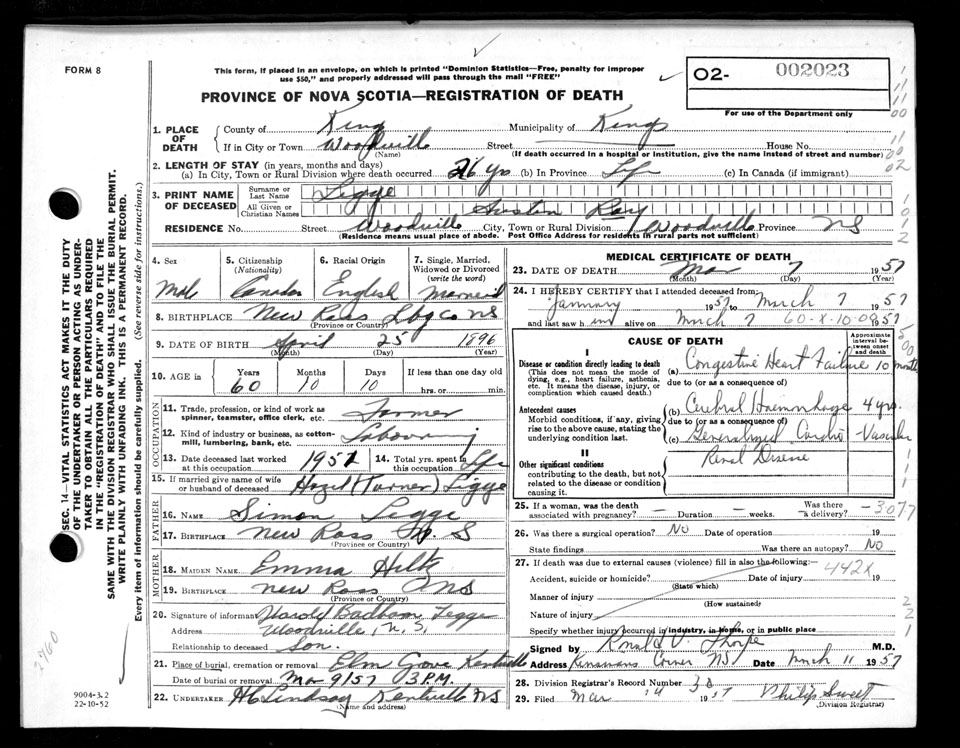 FORM 8
This form, if placed in an envelope, on which is printed "Dominion Statistics—Free, penalty for improper
use $50," and properly addressed will pass through the mail "FREE"
PROVINCE OF NOVA SCOTIA—REGISTRATION OF DEATH
O2- 002023
For use of the Department only
SEC. 14—VITAL STATISTICS ACT MAKES IT THE DUTY
OF THE UNDERTAKER OR PERSON ACTING AS UNDER-
TAKER TO OBTAIN ALL THE PARTICULARS REQUIRED
IN THE "REGISTRATION OF DEATH" AND TO FILE THE
SAME WITH THE DIVISION REGISTRAR WHO SHALL ISSUE THE BURIAL PERMIT.
WRITE PLAINLY WITH UNFADING INK. THIS IS A PERMANENT RECORD.
Every item of information should be carefully supplied. (See reverse side for instructions.)
1. PLACE OF DEATH County of Kings Municipality of Kings
If in City or Town Woodville Street House No.
(Name) (If death occurred in a hospital or institution, give the name instead of street and number)
2. LENGTH OF STAY (in years, months and days)
(a) In City, Town or Rural Division where death occurred 26 yrs (b) In Province Life (c) In Canada (if immigrant)
3. PRINT NAME OF DECEASED Surname or Last Name Legge
All Given or Christian Names Austin Ray
RESIDENCE No. Street Woodville City, Town or Rural Division Woodville Province NS
(Residence means usual place of abode. Post Office Address for residents in rural parts not sufficient)
4. Sex Male
5. Citizenship (Nationality) Canadian
6. Racial Origin English
7. Single, Married, Widowed or Divorced (write the word) Married
8. BIRTHPLACE New Ross Lbg Co NS
(Province or Country)
9. DATE OF BIRTH April 25 1896
(Month) (Day) (Year)
10. AGE in Years 60 Months 10 Days 10 If less than one day old hrs. or min.
OCCUPATION
11. Trade, profession, or kind of work as spinner, teamster, office clerk, etc. Farmer
12. Kind of industry or business, as cotton-mill, lumbering, bank, etc. Labouring
13. Date deceased last worked at this occupation 1951
14. Total yrs. spent in this occupation Life
15. If married give name of wife or husband of deceased Hazel (Turner) Legge
FATHER
16. NAME Simon Legge
17. BIRTHPLACE New Ross N.S
(Province or Country)
MOTHER
18. MAIDEN NAME Emma Hiltz
19. BIRTHPLACE New Ross NS
(Province or Country)
20. Signature of informant Harold Badham Legge
Address Woodville, N.S,
Relationship to deceased Son.
21. Place of burial, cremation or removal Elm Grove Kentville
Date of burial or removal Mar 9/57 3 P.M.
22. UNDERTAKER H C Lindsay Kentville NS
(Name and address)
9004-3.2
22-10-52
MEDICAL CERTIFICATE OF DEATH
23. DATE OF DEATH Mar 7 1957
(Month) (Day) (Year)
24. I HEREBY CERTIFY that I attended deceased from:
January 1957 to March 7 1957
and last saw him alive on March 7 60-X-10-09 1957
CAUSE OF DEATH
Approximate interval between onset and death
I
Disease or condition directly leading to death
(This does not mean the mode of dying, e.g., heart failure, asthenia, etc. It means the disease, injury, or complication which caused death.)
(a) Congestive Heart Failure 10 months
due to (or as a consequence of)
Antecedent causes
Morbid conditions, if any, giving rise to the above cause, stating the underlying condition last.
(b) Cerebral Haemorrhage 4 yrs.
due to (or as a consequence of)
(c) Generalized Cardio-Vascular
Renal Disease
II
Other significant conditions
contributing to the death, but not related to the disease or condition causing it.
25. If a woman, was the death associated with pregnancy? — Duration — weeks. Was there a delivery? —
26. Was there a surgical operation? No Date of operation 19
State findings Was there an autopsy? No
27. If death was due to external causes (violence) fill in also the following:—
442X
Accident, suicide or homicide? Date of injury 19
(State which)
Manner of injury
(How sustained)
Nature of injury
Specify whether injury occurred in industry, in home, or in public place
Signed by Ronald V. Thorpe M.D.
Address Kinsmans Corner NS Date March 11 1957
28. Division Registrar's Record Number 38
29. Filed Mar 14 1957 Philip Sweet
(Division Registrar)